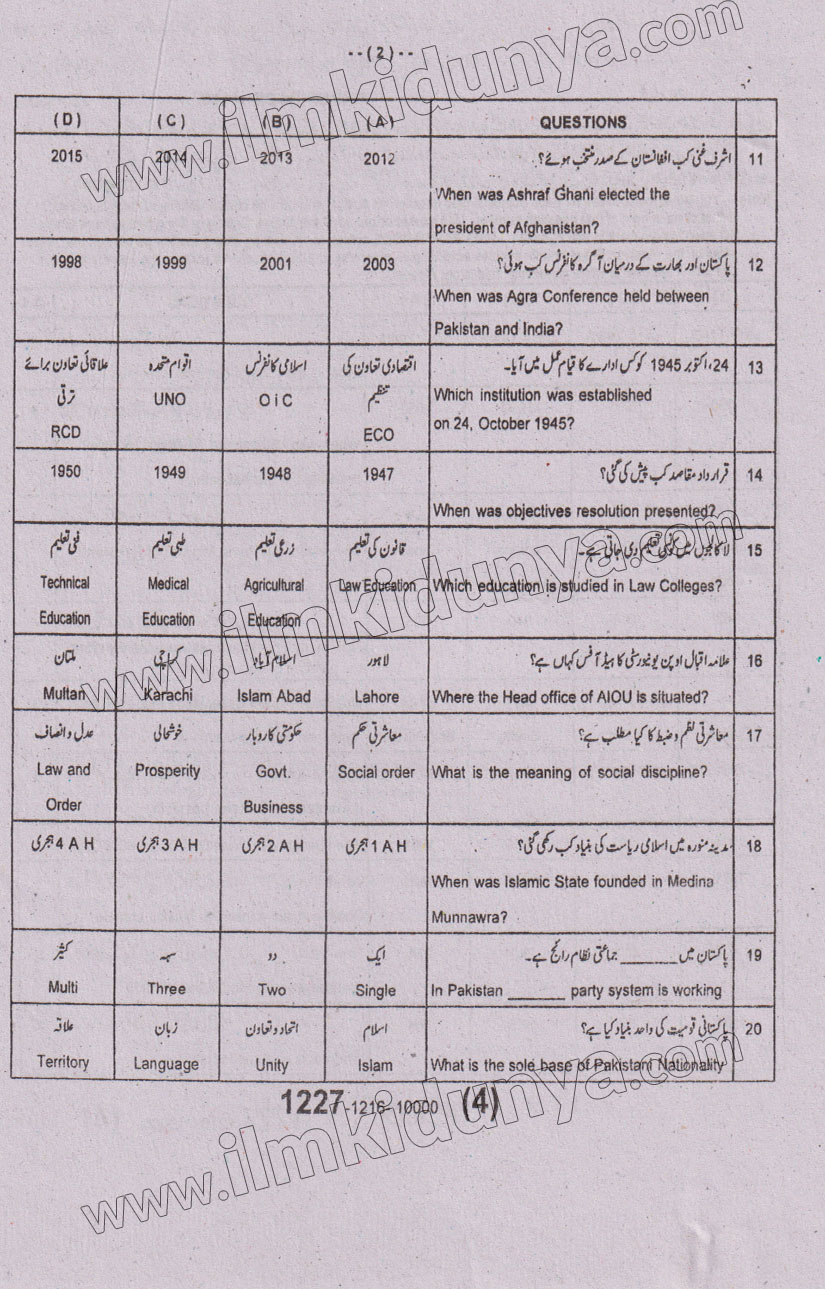 --(2)--
(D) (C) (B) (A) QUESTIONS
2015 2014 2013 2012 اشرف غنی کب افغانستان کے صدر منتخب ہوئے؟ 11
When was Ashraf Ghani elected the
president of Afghanistan?
1998 1999 2001 2003 پاکستان اور بھارت کے درمیان آگرہ کانفرنس کب ہوئی؟ 12
When was Agra Conference held between
Pakistan and India?
علاقائی تعاون برائے اقوام متحدہ اسلامی کانفرنس اقتصادی تعاون کی 24، اکتوبر 1945 کو کس ادارے کا قیام عمل میں آیا۔ 13
ترقی UNO OiC تنظیم Which institution was established
RCD ECO on 24, October 1945?
1950 1949 1948 1947 قرارداد مقاصد کب پیش کی گئی؟ 14
When was objectives resolution presented?
فنی تعلیم طبی تعلیم زرعی تعلیم قانون کی تعلیم لا کالجوں میں کونسی تعلیم دی جاتی ہے۔ 15
Technical Medical Agricultural Law Education Which education is studied in Law Colleges?
Education Education Education
ملتان کراچی اسلام آباد لاہور علامہ اقبال اوپن یونیورسٹی کا ہیڈ آفس کہاں ہے؟ 16
Multan Karachi Islam Abad Lahore Where the Head office of AIOU is situated?
عدل و انصاف خوشحالی حکومتی کاروبار معاشرتی حکم معاشرتی نظم و ضبط کا کیا مطلب ہے؟ 17
Law and Prosperity Govt. Social order What is the meaning of social discipline?
Order Business
4 A H ہجری 3 A H ہجری 2 A H ہجری 1 A H ہجری مدینہ منورہ میں اسلامی ریاست کی بنیاد کب رکھی گئی؟ 18
When was Islamic State founded in Medina
Munnawra?
کثیر سہ دو ایک پاکستان میں ______ جماعتی نظام رائج ہے۔ 19
Multi Three Two Single In Pakistan ______ party system is working
علاقہ زبان اتحاد و تعاون اسلام پاکستانی قومیت کی واحد بنیاد کیا ہے؟ 20
Territory Language Unity Islam What is the sole base of Pakistani Nationality
1227-1216-10000 (4)
www.ilmkidunya.com
www.ilmkidunya.com
www.ilmkidunya.com